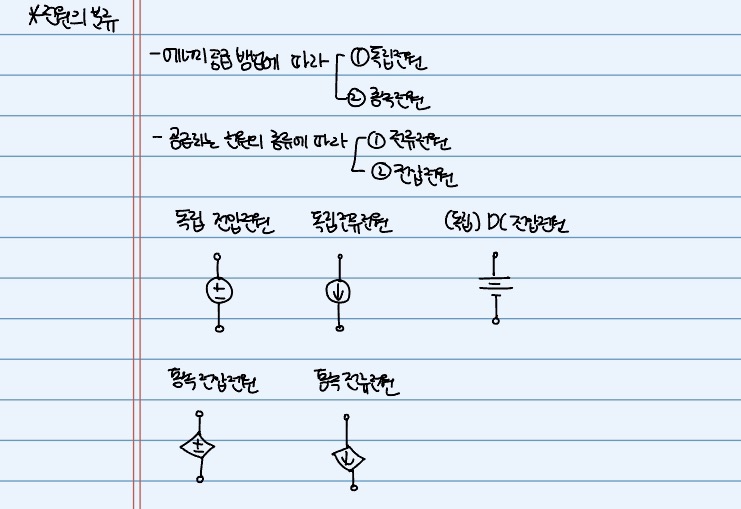 *전원의 분류
- 에너지 공급 방법에 따라 ① 독립전원
② 종속전원
- 공급하는 전원의 종류에 따라 ① 전류전원
② 전압전원
독립 전압전원 독립전류전원 (독립) DC 전압전원
종속전압전원 종속전류전원